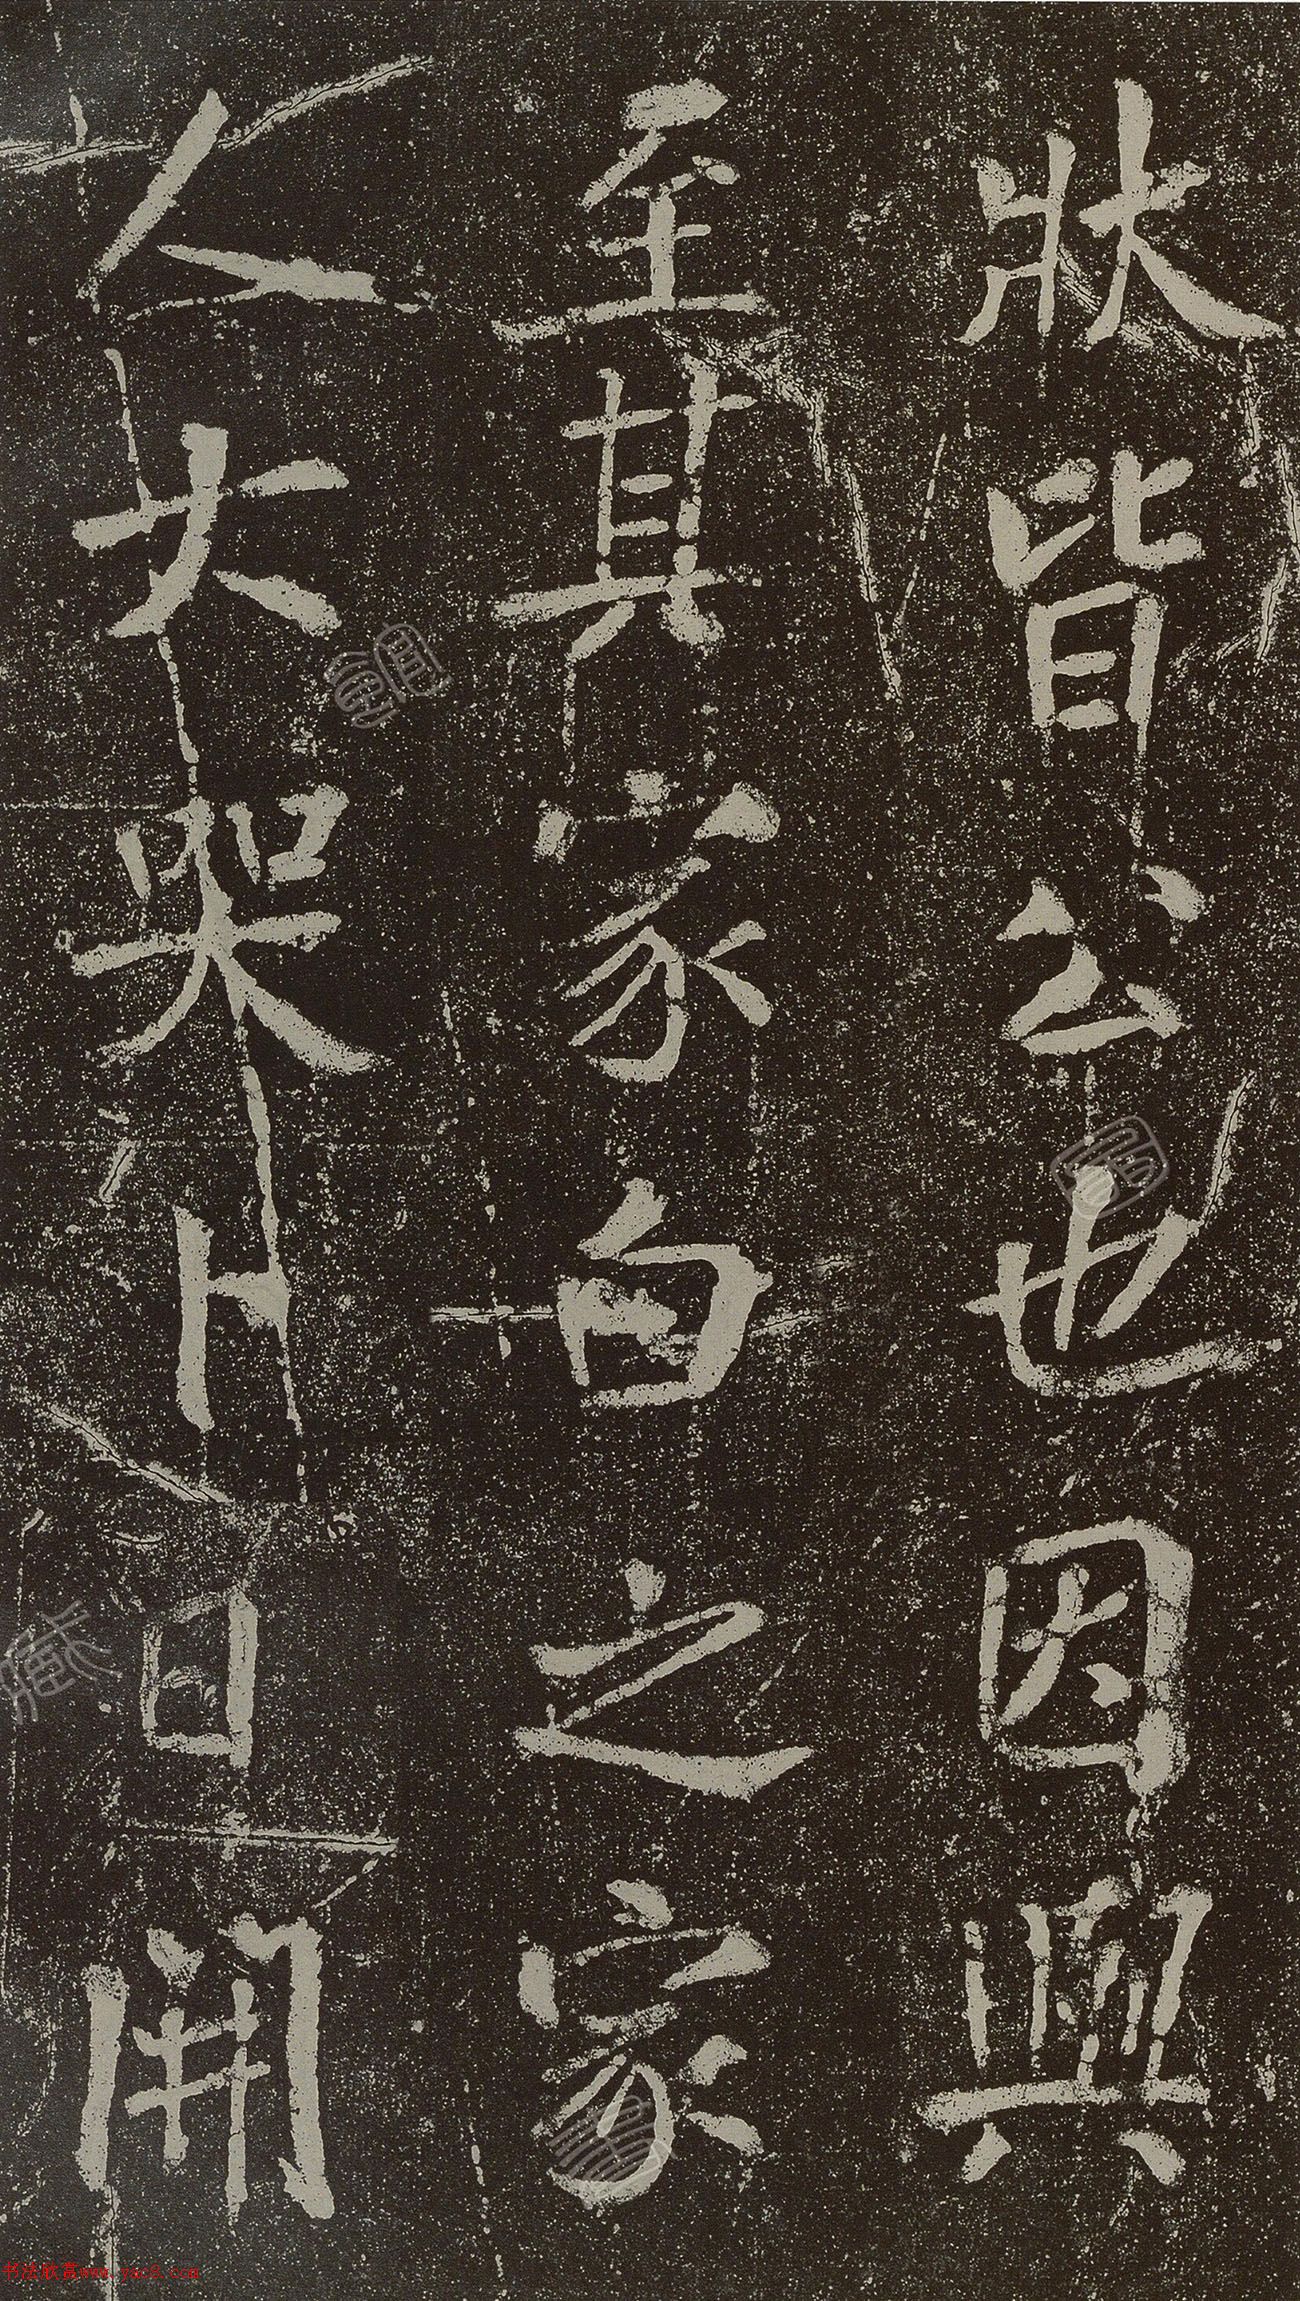 狀皆公也因興
至其家白之家
人大哭日開
书法欣赏www.yac8.com